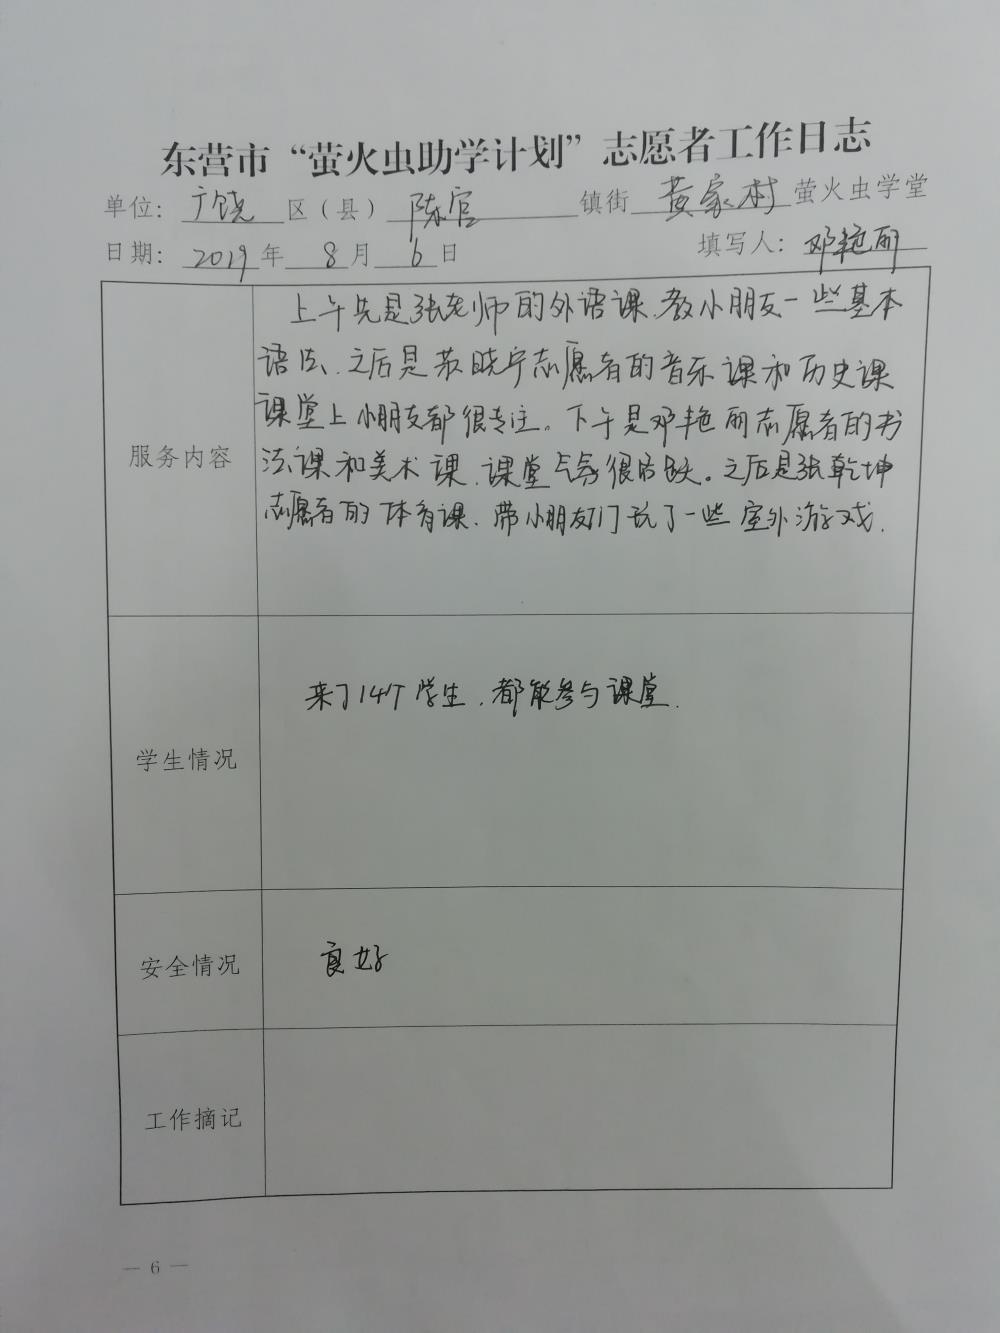 东营市“萤火虫助学计划”志愿者工作日志
单位：广饶区（县）陈官镇街黄家村萤火虫学堂
日期：2019年8月6日 填写人：邓艳丽
服务内容
上午先是张老师的外语课、教小朋友一些基本
语法、之后是苏晓宁志愿者的音乐课和历史课
课堂上小朋友都很专注。下午是邓艳丽志愿者的书
法课和美术课、课堂气氛很活跃。之后是张乾坤
志愿者的体育课、带小朋友们玩了一些室外游戏.
学生情况
来了14个学生、都能参与课堂.
安全情况
良好
工作摘记
— 6 —